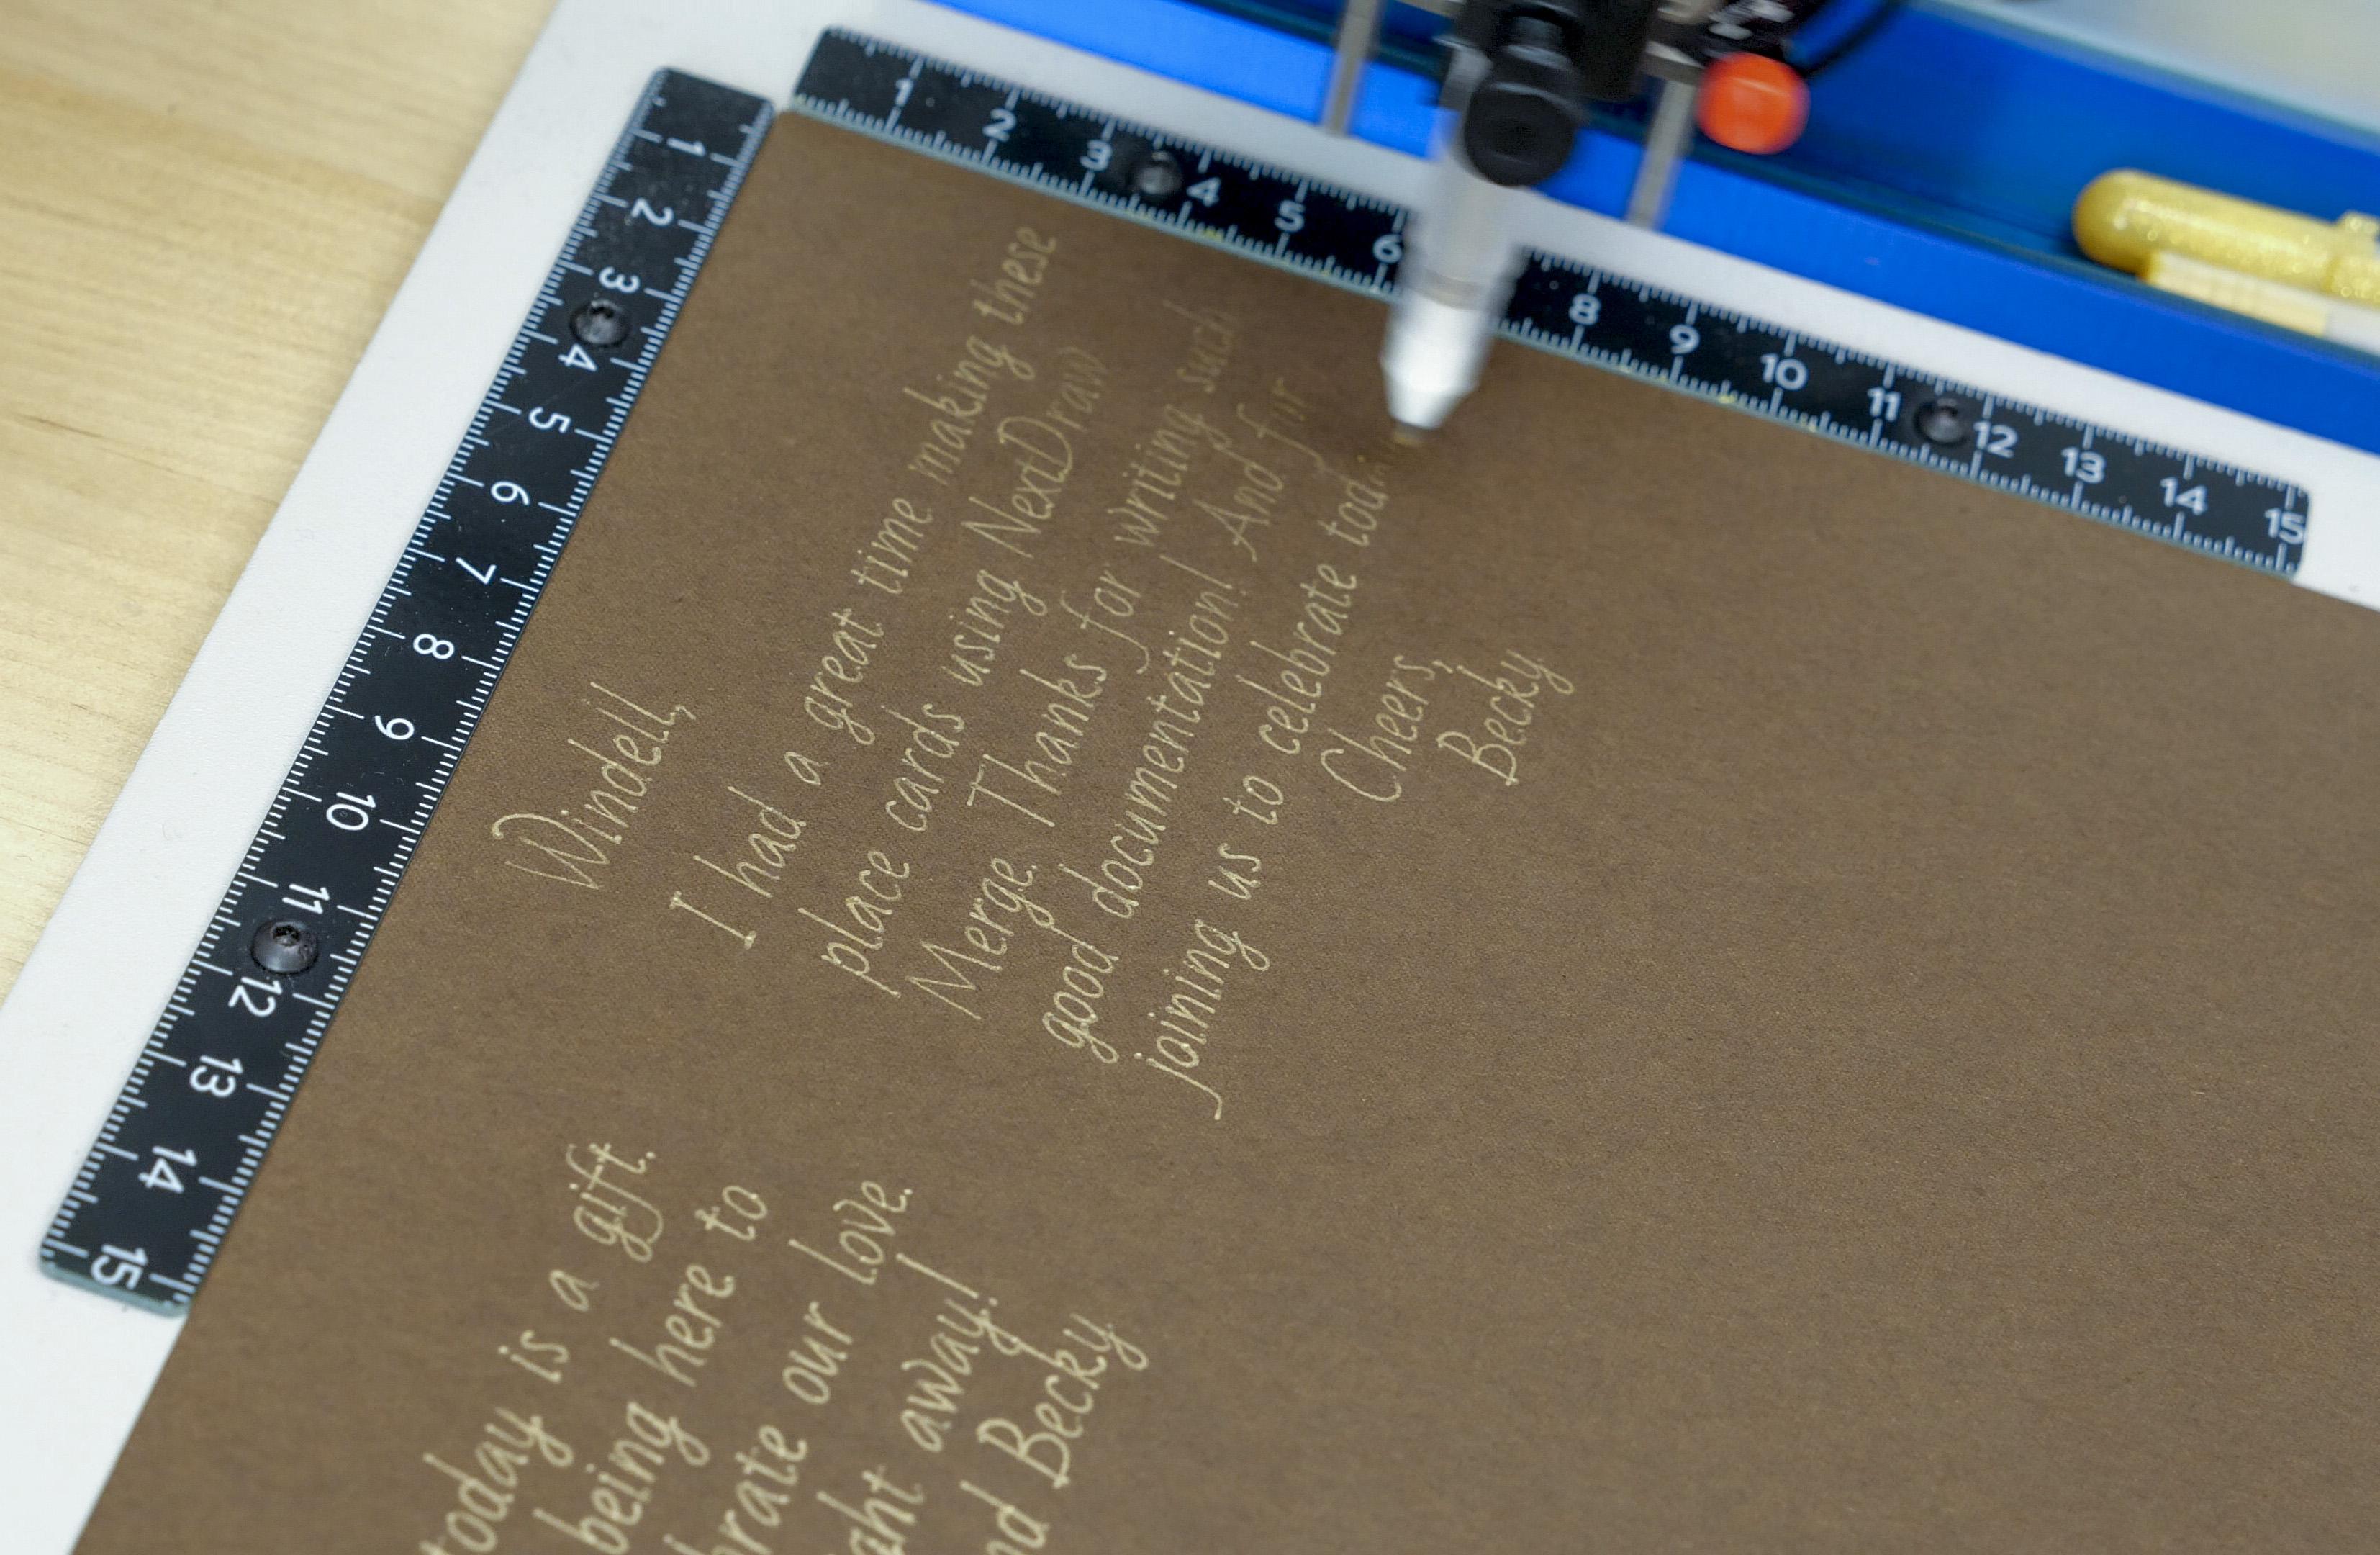 1 2 3 4 5 6 8 9 10 11 12 13 14 15
1 2 3 4 5 6 7 8 9 10 11 12 13 14 15
Windell,
I had a great time making these
place cards using NextDraw
Merge. Thanks for writing such
good documentation! And for
joining us to celebrate
Cheers,
Becky
today is a gift.
being here to
brate our love.
ght away!
nd Becky